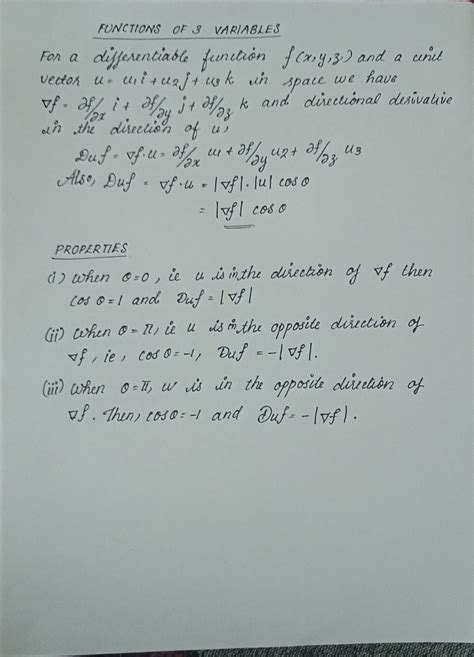 FUNCTIONS OF 3 VARIABLES
For a differentiable function f(x,y,z) and a unit
vector u = u1i + u2j + u3k in space we have
∇f = ∂f/∂x i + ∂f/∂y j + ∂f/∂z k and directional derivative
in the direction of u,
Duf = ∇f·u = ∂f/∂x u1 + ∂f/∂y u2 + ∂f/∂z u3
Also, Duf = ∇f·u = |∇f|·|u| cos θ
= |∇f| cos θ
PROPERTIES
(i) When θ=0, ie u is in the direction of ∇f then
cos θ=1 and Duf = |∇f|
(ii) When θ=π, ie u is in the opposite direction of
∇f, ie, cos θ=-1, Duf = -|∇f|.
(iii) When θ=π, u is in the opposite direction of
∇f. Then, cos θ=-1 and Duf = -|∇f|.